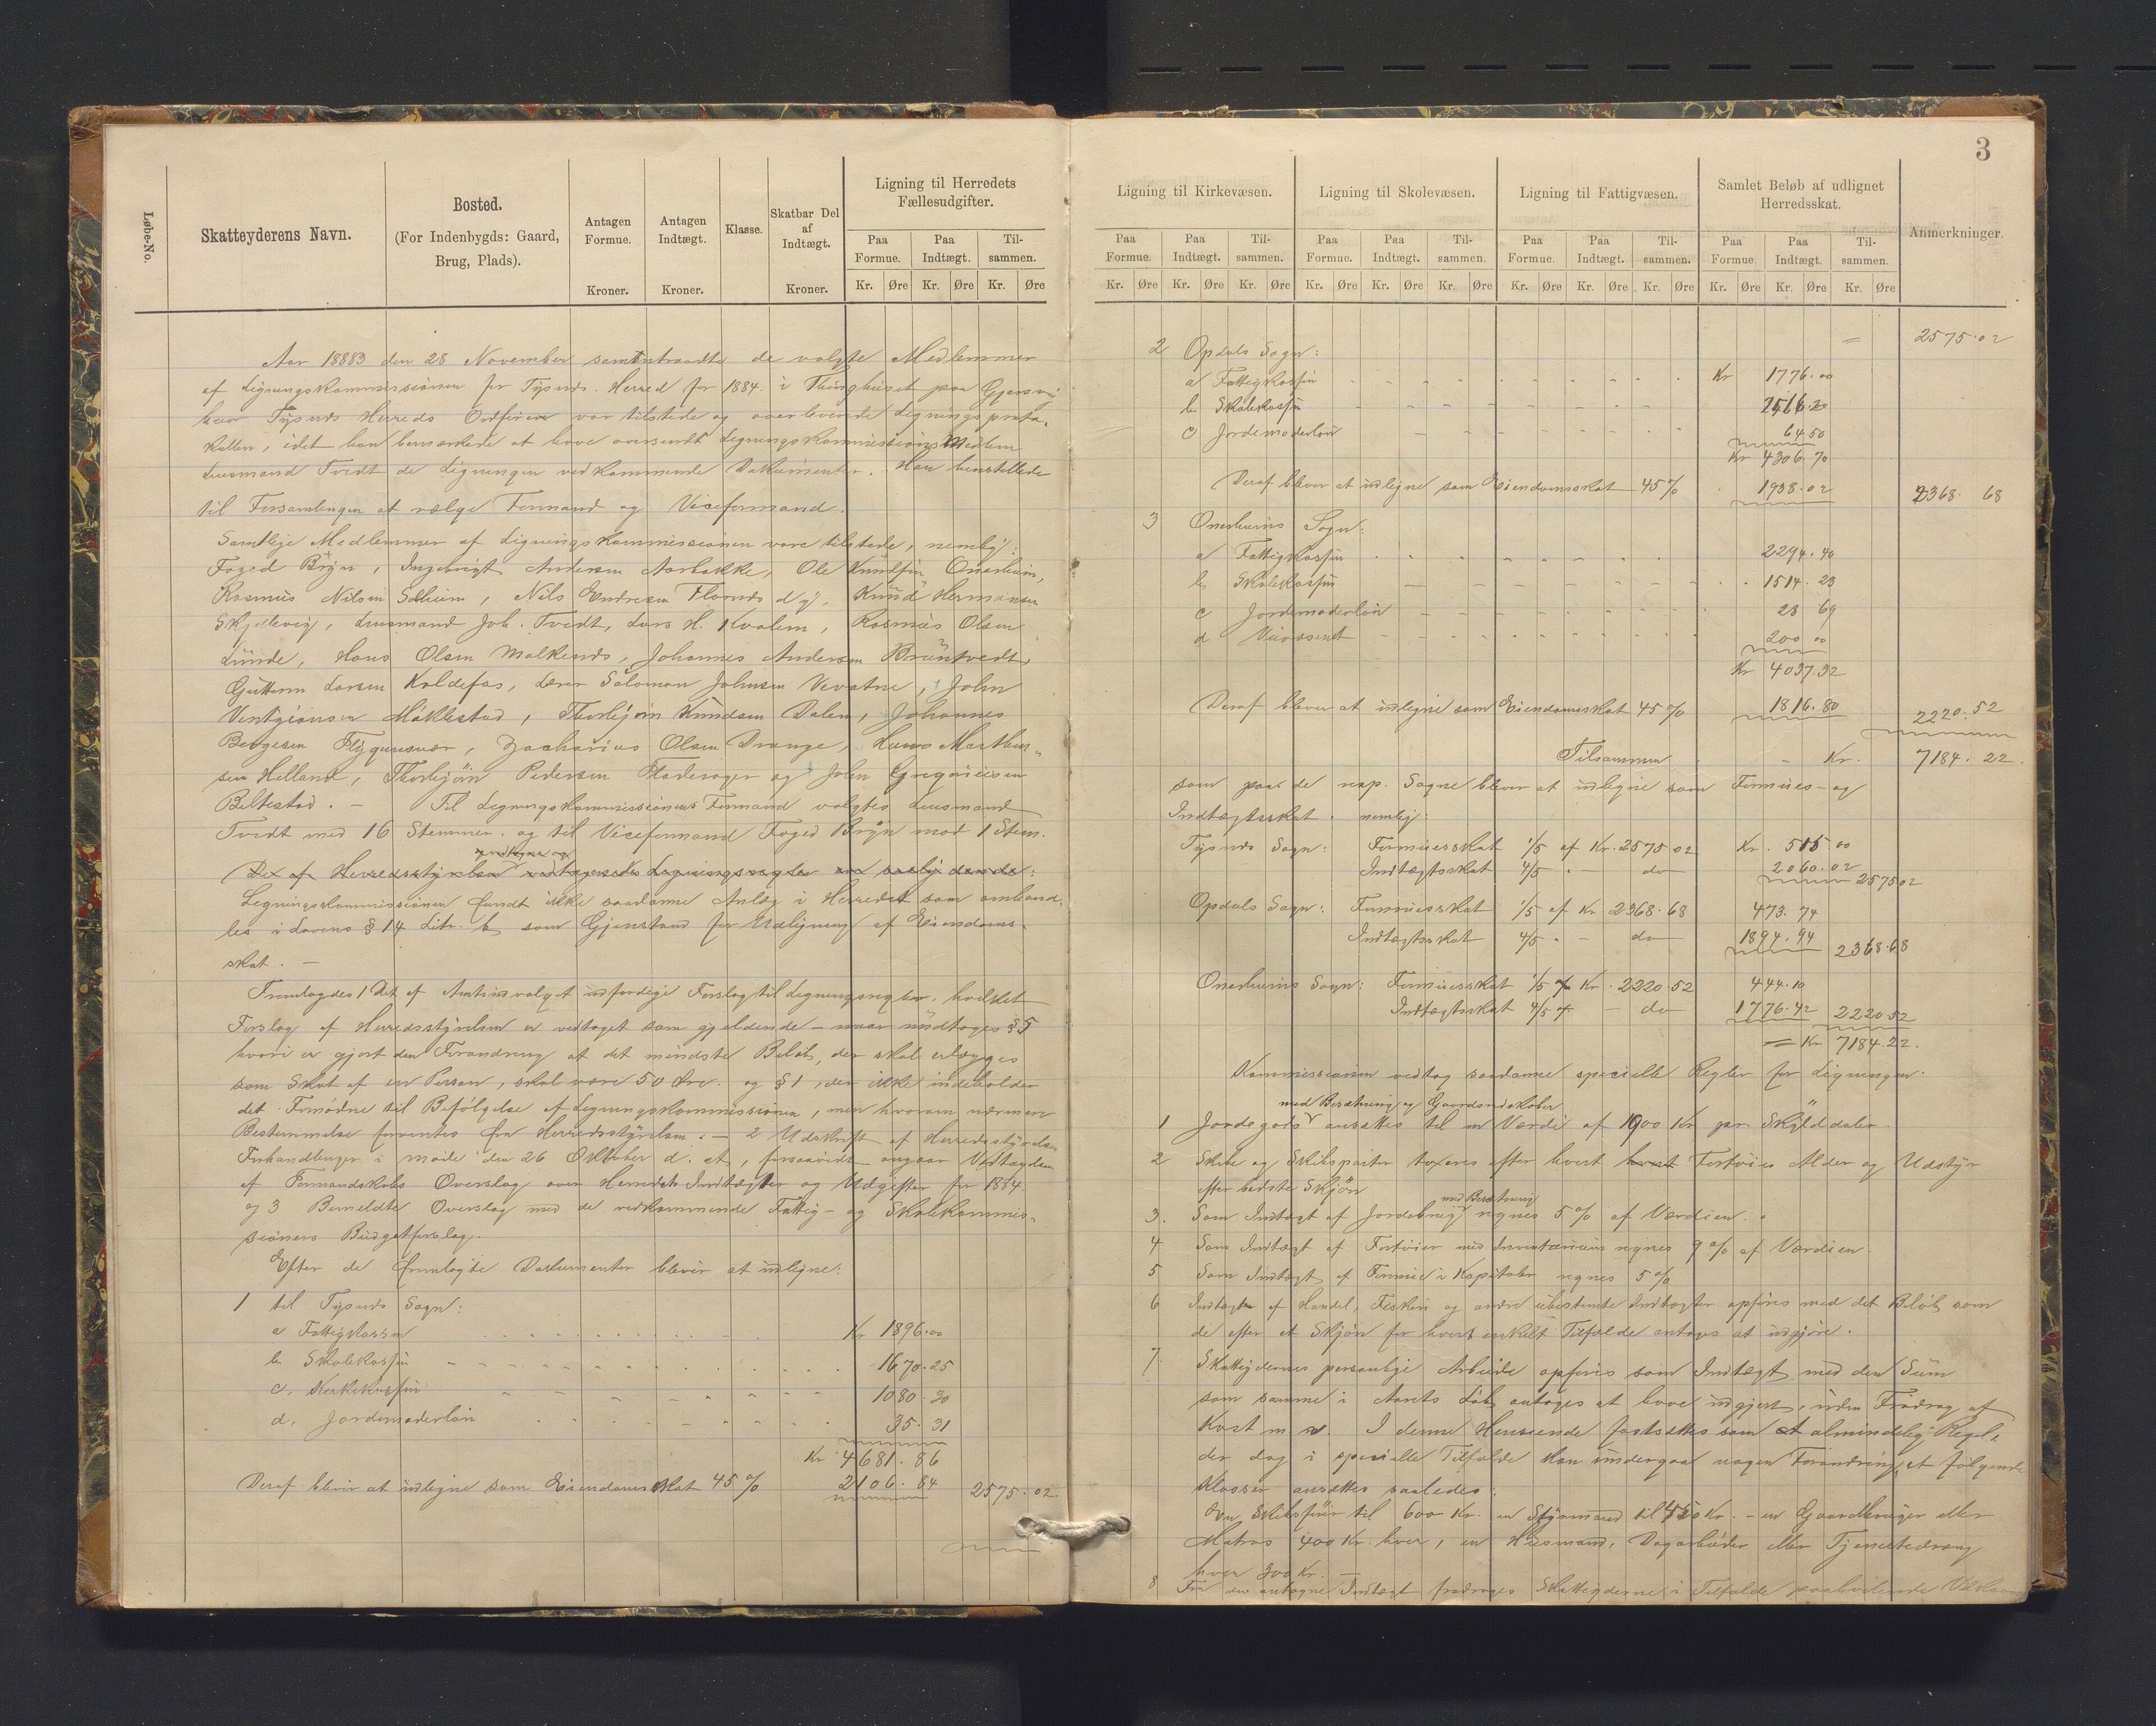 Løbe-No.
Skatteyderens Navn.
Bosted.
(For Indenbygds: Gaard,
Brug, Plads).
Antagen
Formue.
Kroner.
Antagen
Indtægt.
Kroner.
Klasse.
Skatbar Del
af
Indtægt.
Kroner.
Ligning til Herredets
Fællesudgifter.
Paa
Formue.
Paa
Indtægt.
Til-
sammen.
Kr. Øre Kr. Øre Kr. Øre
Aar 18883 den 28 November sammentraadte de valgte Medlemmer
af Ligningskommissionen for Tysnæs Herred for 1884 i Thinghuset paa Gjersvig
hvor Tysnæs Herreds Ordfører var tilstede og overleverede Ligningsproto-
kollen, idet han bemærkede at have oversendt Ligningskommissions Medlem
Lensmand Tvedt de Ligningen vedkommende Dokumenter. Han henstillede
til Forsamlingen at vælge Formand og Viceformand.
Samtlige Medlemmer af Ligningskommissionen vare tilstede, nemlig:
Foged Bryn, Ingebrigt Andersen Aarbakke, Ole Knudsen Onarheim,
Rasmus Nilsen Solheim, Nils Endresen Flornæs d y, Knud Hermansen
Skjellevig, Lensmand Joh. Tvedt, Lars H. Kvalem, Rasmus Olsen
Lunde, Hans Olsen Malkenæs, Johannes Andersen Bruntvedt,
Guttorm Larsen Koldefos, Lærer Salomon Johnsen Vevatne, John
Maklestad, Thorbjørn Knudsen Dalen, Johannes
Børgesen Flygansvær, Zacharias Olsen Drange, Hans Marthin-
sen Helland, Thorbjørn Pedersen Fladerager og John Gregoriusen
Beltestad. – Til Ligningskommissionens Formand valgtes Lensmand
Tvedt med 16 Stemmer og til Viceformand Foged Bryn mod 1 Stem.
vedtagne og
De af Herredsstyrelsen vedtagende Ligningsregler er saalydende:
Ligningskommissionen fandt ikke saadanne Anlæg i Herredet som omhand-
les i Lovens § 14 Litr. b som Gjenstand for Udligning af Eiendoms-
skat. –
Fremlagdes 1 Det af Amtsudvalget udfærdige Forslag til Ligningsregler, hvilket
Forslag af Herredsstyrelsen er vedtaget som gjeldende – naar undtages § 5
hvori er gjort den Forandring at det mindste Beløb, der skal erlægges
som Skat af en Person, skal være 50 Øre. og § 1, der ikke indeholder
det Fornødne til Befølgelse af Ligningskommissionen, men hvorom nærmere
Bestemmelse forventes fra Herredsstyrelsen. – 2 Udskrift af Herredsstyrelsens
Forhandlinger i møde den 26 Oktober d. A., forsaavidt angaar Vedtagelsen
af Formandskabs Overslag over Herredets Indtægter og Udgifter for 1884
og 3 Bemeldte Overslag med de vedkommende Fattig- og Skolekommis-
sioners Budgetforslag.
Efter de fremlagte Dokumenter bliver at udligne:
1 til Tysnæs Sogn:
a Fattigkassen Kr 1896.00
b Skolekassen 1670.25
c. Kirkekassen 1080.30
d. Jordemoderløn 35.31
Kr 4681.86
Deraf bliver at udligne som Eiendomsskat 45% 2106.84 2575.02.
3
Ligning til Kirkevæsen.
Ligning til Skolevæsen.
Ligning til Fattigvæsen.
Samlet Beløb af udlignet
Herredsskat.
Anmerkninger.
Paa
Formue.
Paa
Indtægt.
Til-
sammen.
Paa
Formue.
Paa
Indtægt.
Til-
sammen.
Paa
Formue.
Paa
Indtægt.
Til-
sammen.
Paa
Formue.
Paa
Indtægt.
Til-
sammen.
Kr. Øre Kr. Øre Kr. Øre Kr. Øre Kr. Øre Kr. Øre Kr. Øre Kr. Øre Kr. Øre Kr. Øre Kr. Øre Kr. Øre
= 2575.02
2 Opdals Sogn:
a Fattigkassen Kr 1776.00
b Skolekassen
c Jordemoderløn 64 50
Kr 4306.70
Deraf bliver at udligne som Eiendomsskat 45% 1938.02 2368. 68
3 Onerheims Sogn:
a Fattigkassen 2294.40
b Skolekassen 1514.23
c Jordemoderløn 28 69
d 200 00
Kr 4037.32
Deraf bliver at udligne som Eiendomsskat 45% 1816.80 2220.52
Tilsammen – Kr. 7184.22.
som paa de resp. Sogne bliver at udligne som Formues- og
Indtægtsskat. nemlig:
Tysnæs Sogn: Formuesskat 1/5 af Kr. 2575 02 Kr. 515 00
Indtægtsskat 4/5 – do 2060.02 2575 02
Opdals Sogn: Formuesskat 1/5 af Kr 2368.68 473.74
Indtægtsskat 4/5 – do 1894.94 2368.68
Onerheims Sogn: Formuesskat 1/5 af Kr. 2220.52 444.10
Indtægtsskat 4/5 af – do 1776.42 2220.52
= Kr 7184.22.
Kommissionen vedtog saadanne specielle Regler for Ligningen:
med Besætning og Gaardsredskaber
1 Jordegods ansættes til en Værdi af 1900 Kr pr. Skylddaler.
2 Skibe og Skibsparter taxeres efter hvert hvert Fartøies Alder og Udstyr
efter bedste Skjøn
med Besætning
3. Som Indtægt af Jordebrug regnes 5% af Værdien.
4 Som Indtægt af Fartøier med Inventarium regnes 9% af Værdien
5 Som Indtægt af Formue i Kapitaler regnes 5%
6 Indtægter af Handel, Fiskeri og andre ubestemte Indtægter opføres med det Beløb som
de efter et Skjøn for hvert enkelt Tilfælde antages at udgjøre.
7 Skatteydernes personlige Arbeide opføres som Indtægt med den Sum
som samme i Aarets Løb antages at have udgjort, uden Fradrag af
Kost m v. I denne Henseende fastsættes som et almindelig Regel,
der dog i specielle Tilfælde kan undergaa nogen Forandring, at følgende
Klasser ansættes saaledes:
En Skibsfører til 600 Kr. en Styrmand til 450 Kr. – en Gaardbruger eller
Matros 400 Kr. hver, en Husmand, Dagarbeider eller Tjenestedreng
hver 300 Kr. –
8 Fra den antagne Indtægt fradrages Skatteyderne i Tilfælde paahvilende